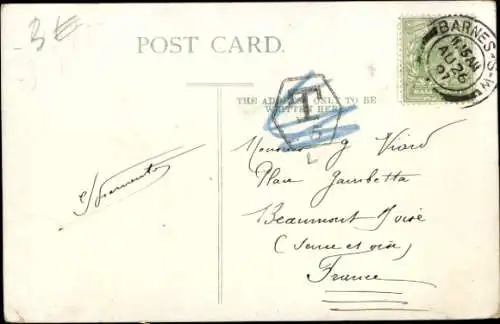 3€
POST CARD.
THE ADDRESS ONLY TO BE
WRITTEN HERE
BARNES · S.W
11.15 AM
AU 26
07
T
5
L
Monsieur G Viard
Place Gambetta
Beaumont s/ oise
(Seine et oise)
France